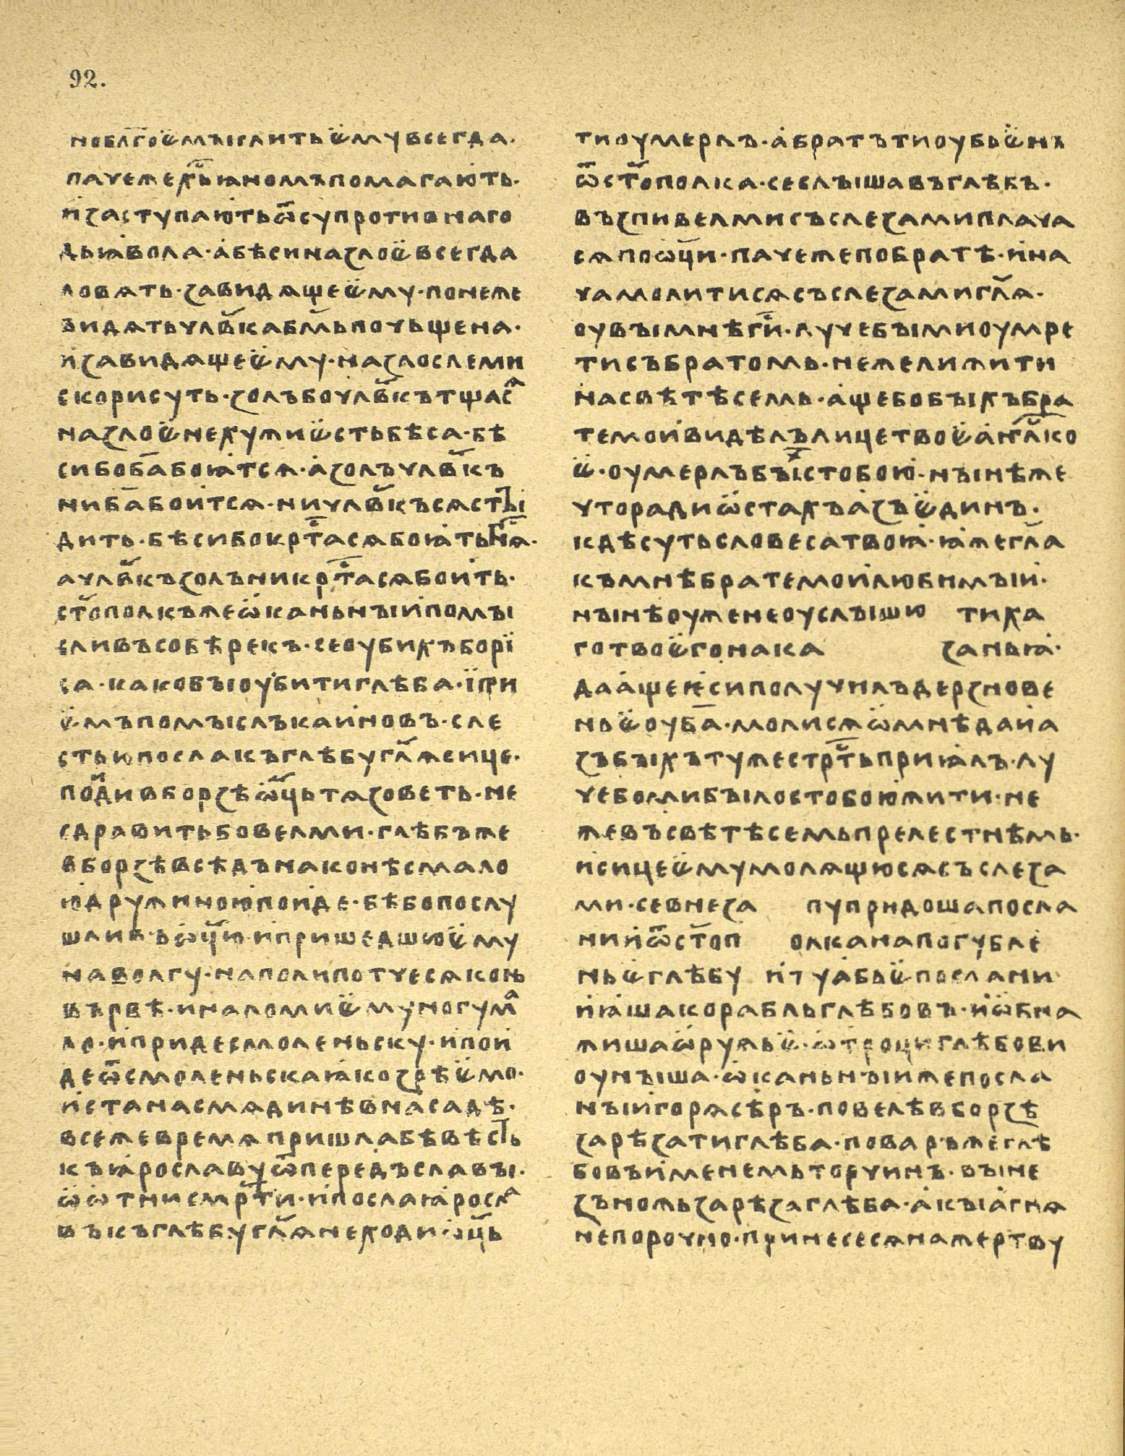 92.
но бл҃гоє мыслить ємѹ всегда·
паче же хрⷭ҇тьӕномъ помагають·
и застѹпають ѿ сѹпротивнаго
дьӕвола· а бѣси на злоє всегда
ловѧть· завидѧще ємѹ· понеже
видѧть члв҃ка бм҃ь почьщена·
и завидѧще ємѹ· на зло слеми
скори сѹть· золъ бо члв҃къ тщасѧ
на злоє не хѹжи єсть бѣса· бѣ
си бо ба҃ боӕтсѧ· а золъ члв҃къ
ни ба҃ боитсѧ· ни члв҃къ сѧ сты
дить· бѣси бо крⷭ҇та сѧ боӕть гнѧ·
а члв҃къ золъ ни крⷭ҇та сѧ боить·
ст҃ополкъ же ѡканьныи и помы
сливъ собѣ рекъ· се ѹбихъ бори
са· како бы оубити глѣба· и при
ємъ помыслъ каиновъ· с ле
стью посла къ глѣбѹ гл҃ѧ сице·
поиди вборзѣ ѿц҃ь тѧ зоветь· не
сдравить бо велми· глѣбъ же
вборзѣ всѣдъ на конѣ с мало
ю дрѹжиною поиде· бѣ бо послѹ
шливъ ѡц҃ю· и пришедшю ємѹ
на волгѹ· на поли потчесѧ конь
въ рвѣ· и наломи ємѹ ногѹ ма
ло· и приде смоленьскѹ· и пои
де ѿ смоленьска ӕко зрѣємо·
и ста на смѧдинѣ в насадѣ·
в се же времѧ пришла бѣ вѣсть
къ ӕрославѹ ѿ передъславы·
ѡ ѡтни смр҃ти· и посла ӕросла
въ къ глѣбѹ гл҃ѧ не ходи· ѡц҃ь
ти оумерлъ· а братъ ти оубьєнъ
ѿ ст҃ополка· се слышавъ глѣбъ·
възпи велми съ слезами плача
сѧ по ѡц҃и· паче же по братѣ· и на
ча молитисѧ съ слезами гл҃ѧ·
оувы мнѣ гⷭ҇и· лѹче бы ми оумре
ти съ братомь· нежели жити
на свѣтѣ семь· аще бо быхъ бра
те мои видѣлъ лице твоє анг҃лко
є· оумерлъ бых с тобою· нынѣ же
что ради ѡстахъ азъ єдинъ·
кдѣ сѹть словеса твоӕ· ӕже гл҃а
къ мнѣ брате мои любимыи·
нынѣ оуже не оуслышю тиха
го твоєго наказаньӕ·
да аще єси полѹчилъ дерзнове
ньє оу ба҃· молисѧ ѡ мнѣ да и а
зъ быхъ тѹже стрⷭ҇ть приӕлъ· лѹ
че бо ми было с тобою жити· не
же въ свѣтѣ семь прелестнѣмь·
и сице ємѹ молѧщюсѧ съ слеза
ми· се внезапѹ придоша посла
нии ѿ ст҃ополка на погѹбле
ньє глѣбѹ и тѹ абьє послани
и ӕша корабль глѣбовъ· и ѡбна
жиша ѡрѹжьє· ѡтроци глѣбови
оуныша· ѡканьныи же посла
ныи горѧсѣръ· повелѣ вборзѣ
зарѣзати глѣба· поваръ же глѣ
бовъ именемь торчинъ· вы не
зъ ножь зарѣза глѣба· акы агнѧ
непорочно· принесесѧ на жертвѹ